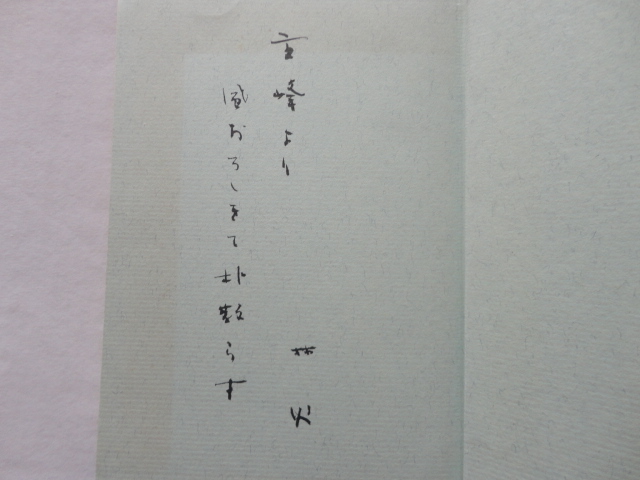 主峰より
風おろしきて
散らす
林火